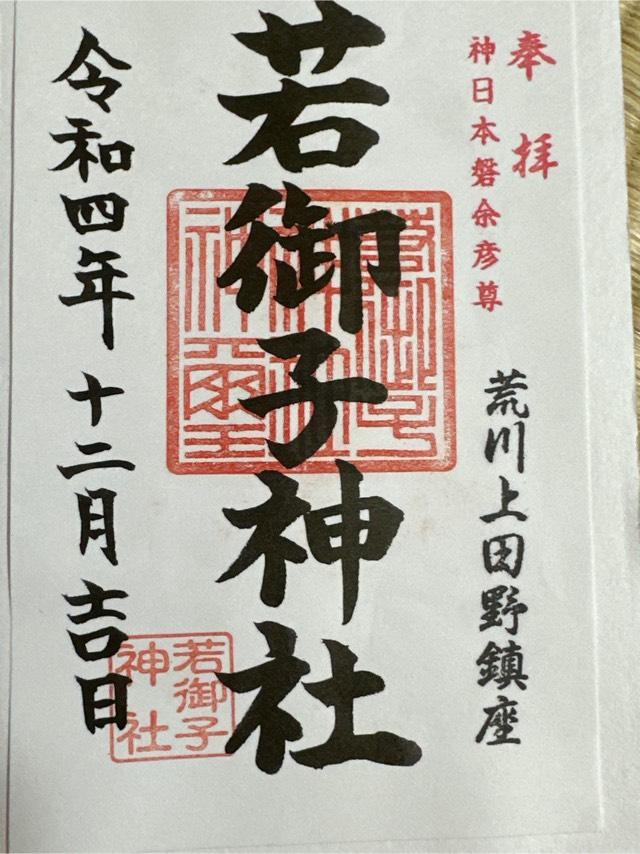 奉拝
神日本磐余彦尊
荒川上田野鎮座
若御子神社
令和四年十二月吉日
若御子
神社